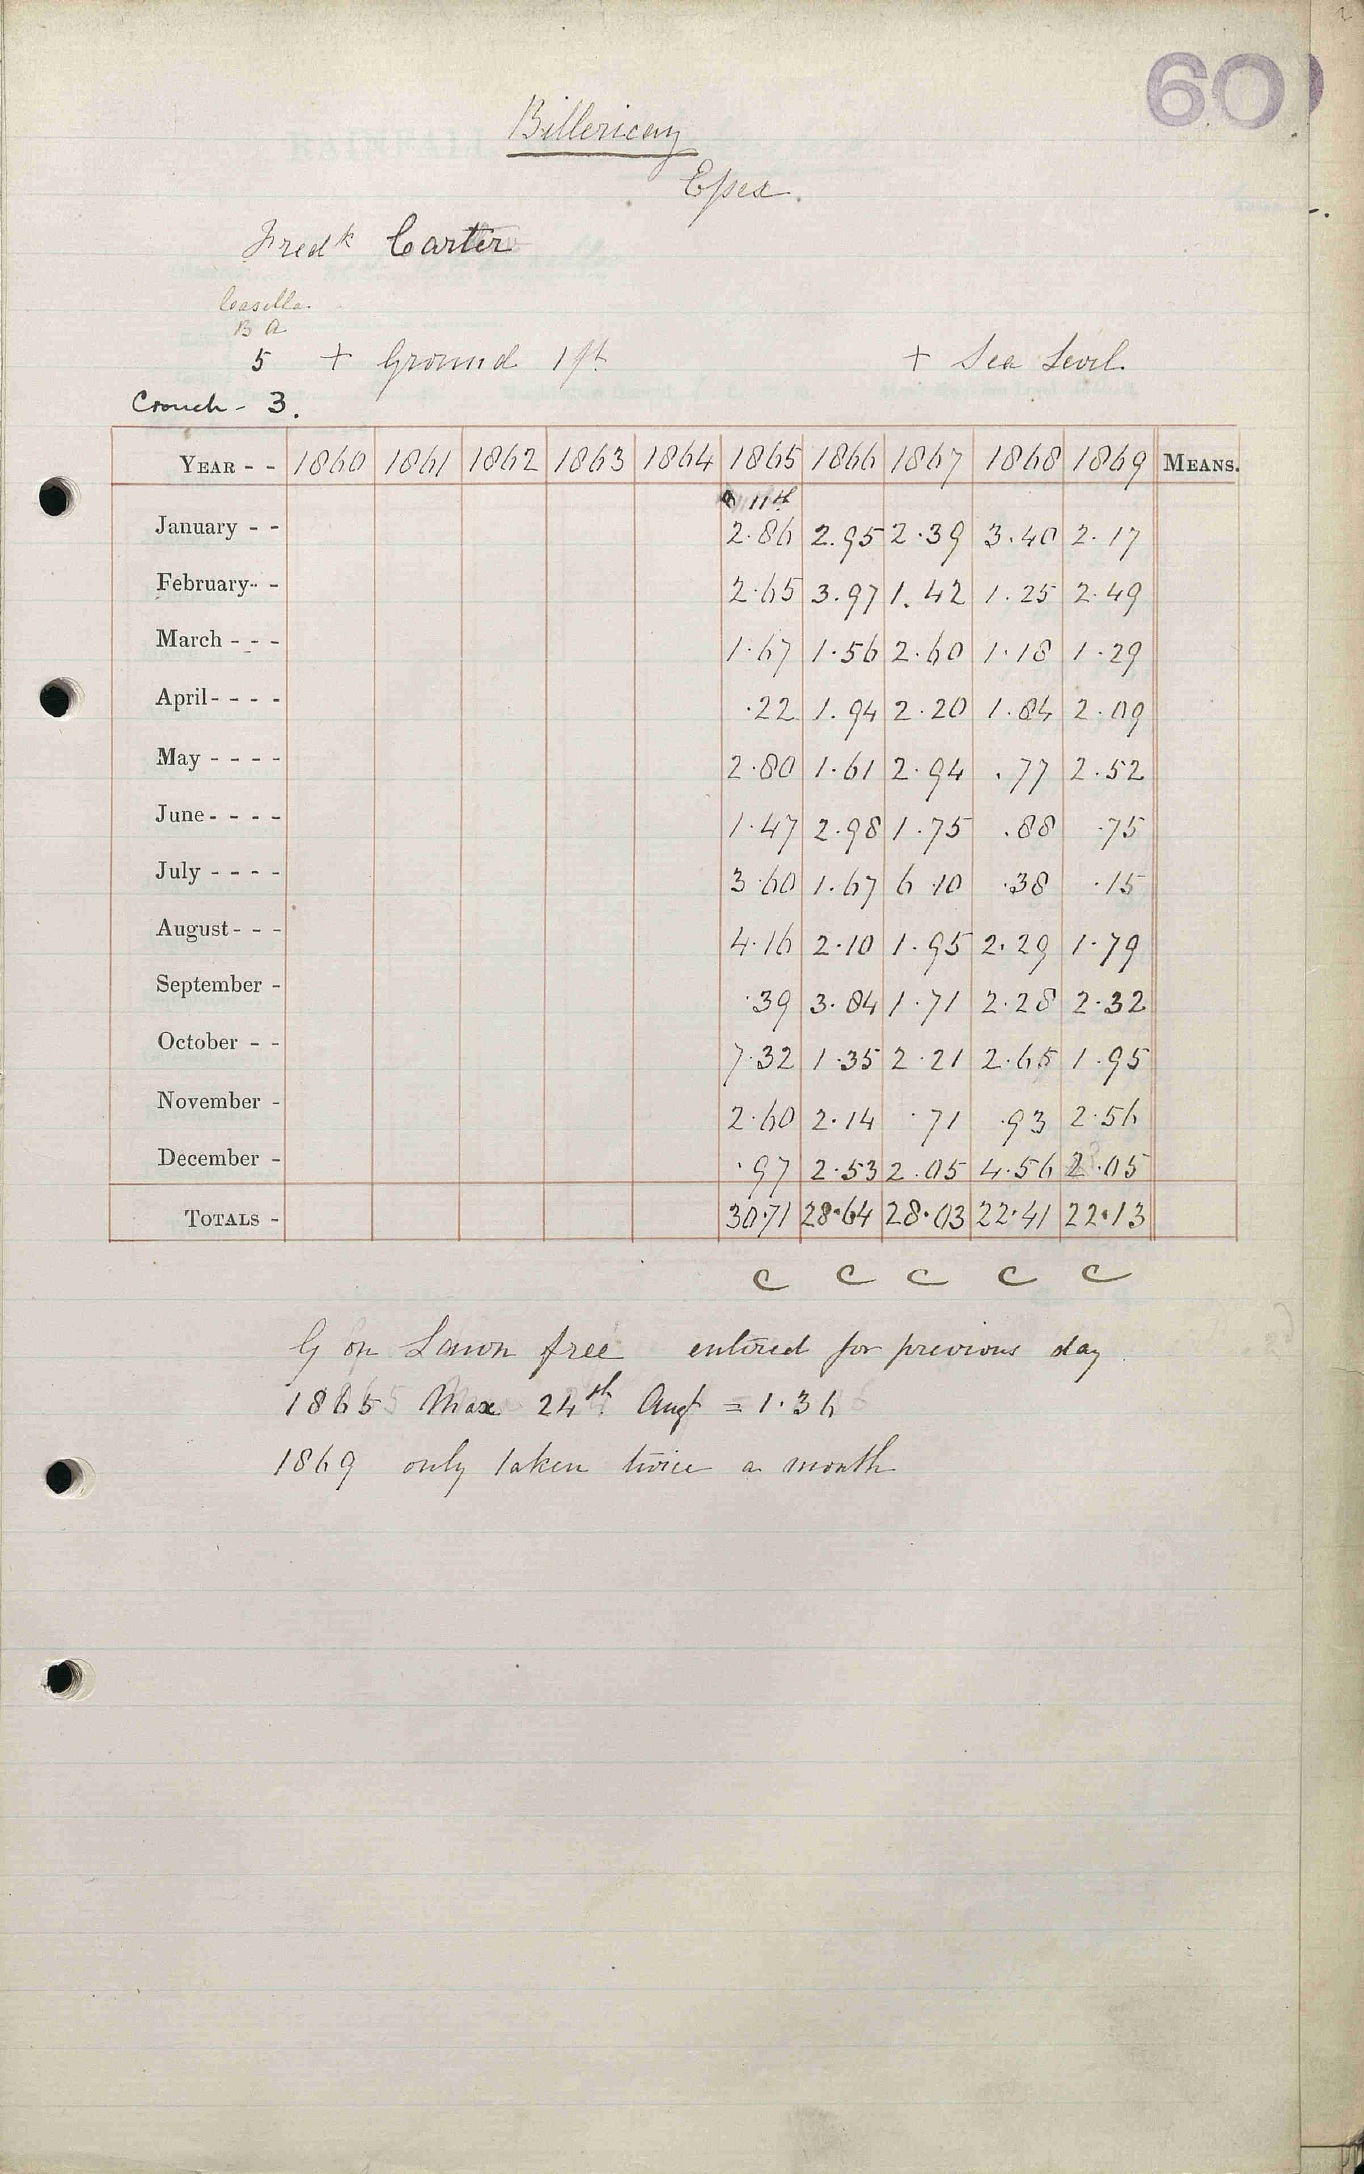 60
Billericay
Essex.
Fredk Carter
Casella
B A
5 + Ground 1 ft + Sea Level.
Crouch - 3.
YEAR - - 1860 1861 1862 1863 1864 1865 1866 1867 1868 1869 MEANS.
11th
January - - 2.86 2.95 2.39 3.40 2.17
February - - 2.65 3.97 1.42 1.25 2.49
March - - - 1.67 1.56 2.60 1.18 1.29
April - - - - .22 1.94 2.20 1.84 2.09
May - - - - 2.80 1.61 2.94 .77 2.52
June - - - - 1.47 2.98 1.75 .88 .75
July - - - - 3.60 1.67 6.10 .38 .15
August - - - 4.16 2.10 1.95 2.29 1.79
September - .39 3.84 1.71 2.28 2.32
October - - 7.32 1.35 2.21 2.65 1.95
November - 2.60 2.14 .71 .93 2.56
December - .97 2.53 2.05 4.56 2.05
TOTALS - 30.71 28.64 28.03 22.41 22.13
C C C C C
G on Lawn free entered for previous day
1865 Max 24th Augt = 1.36
1869 only taken twice a month